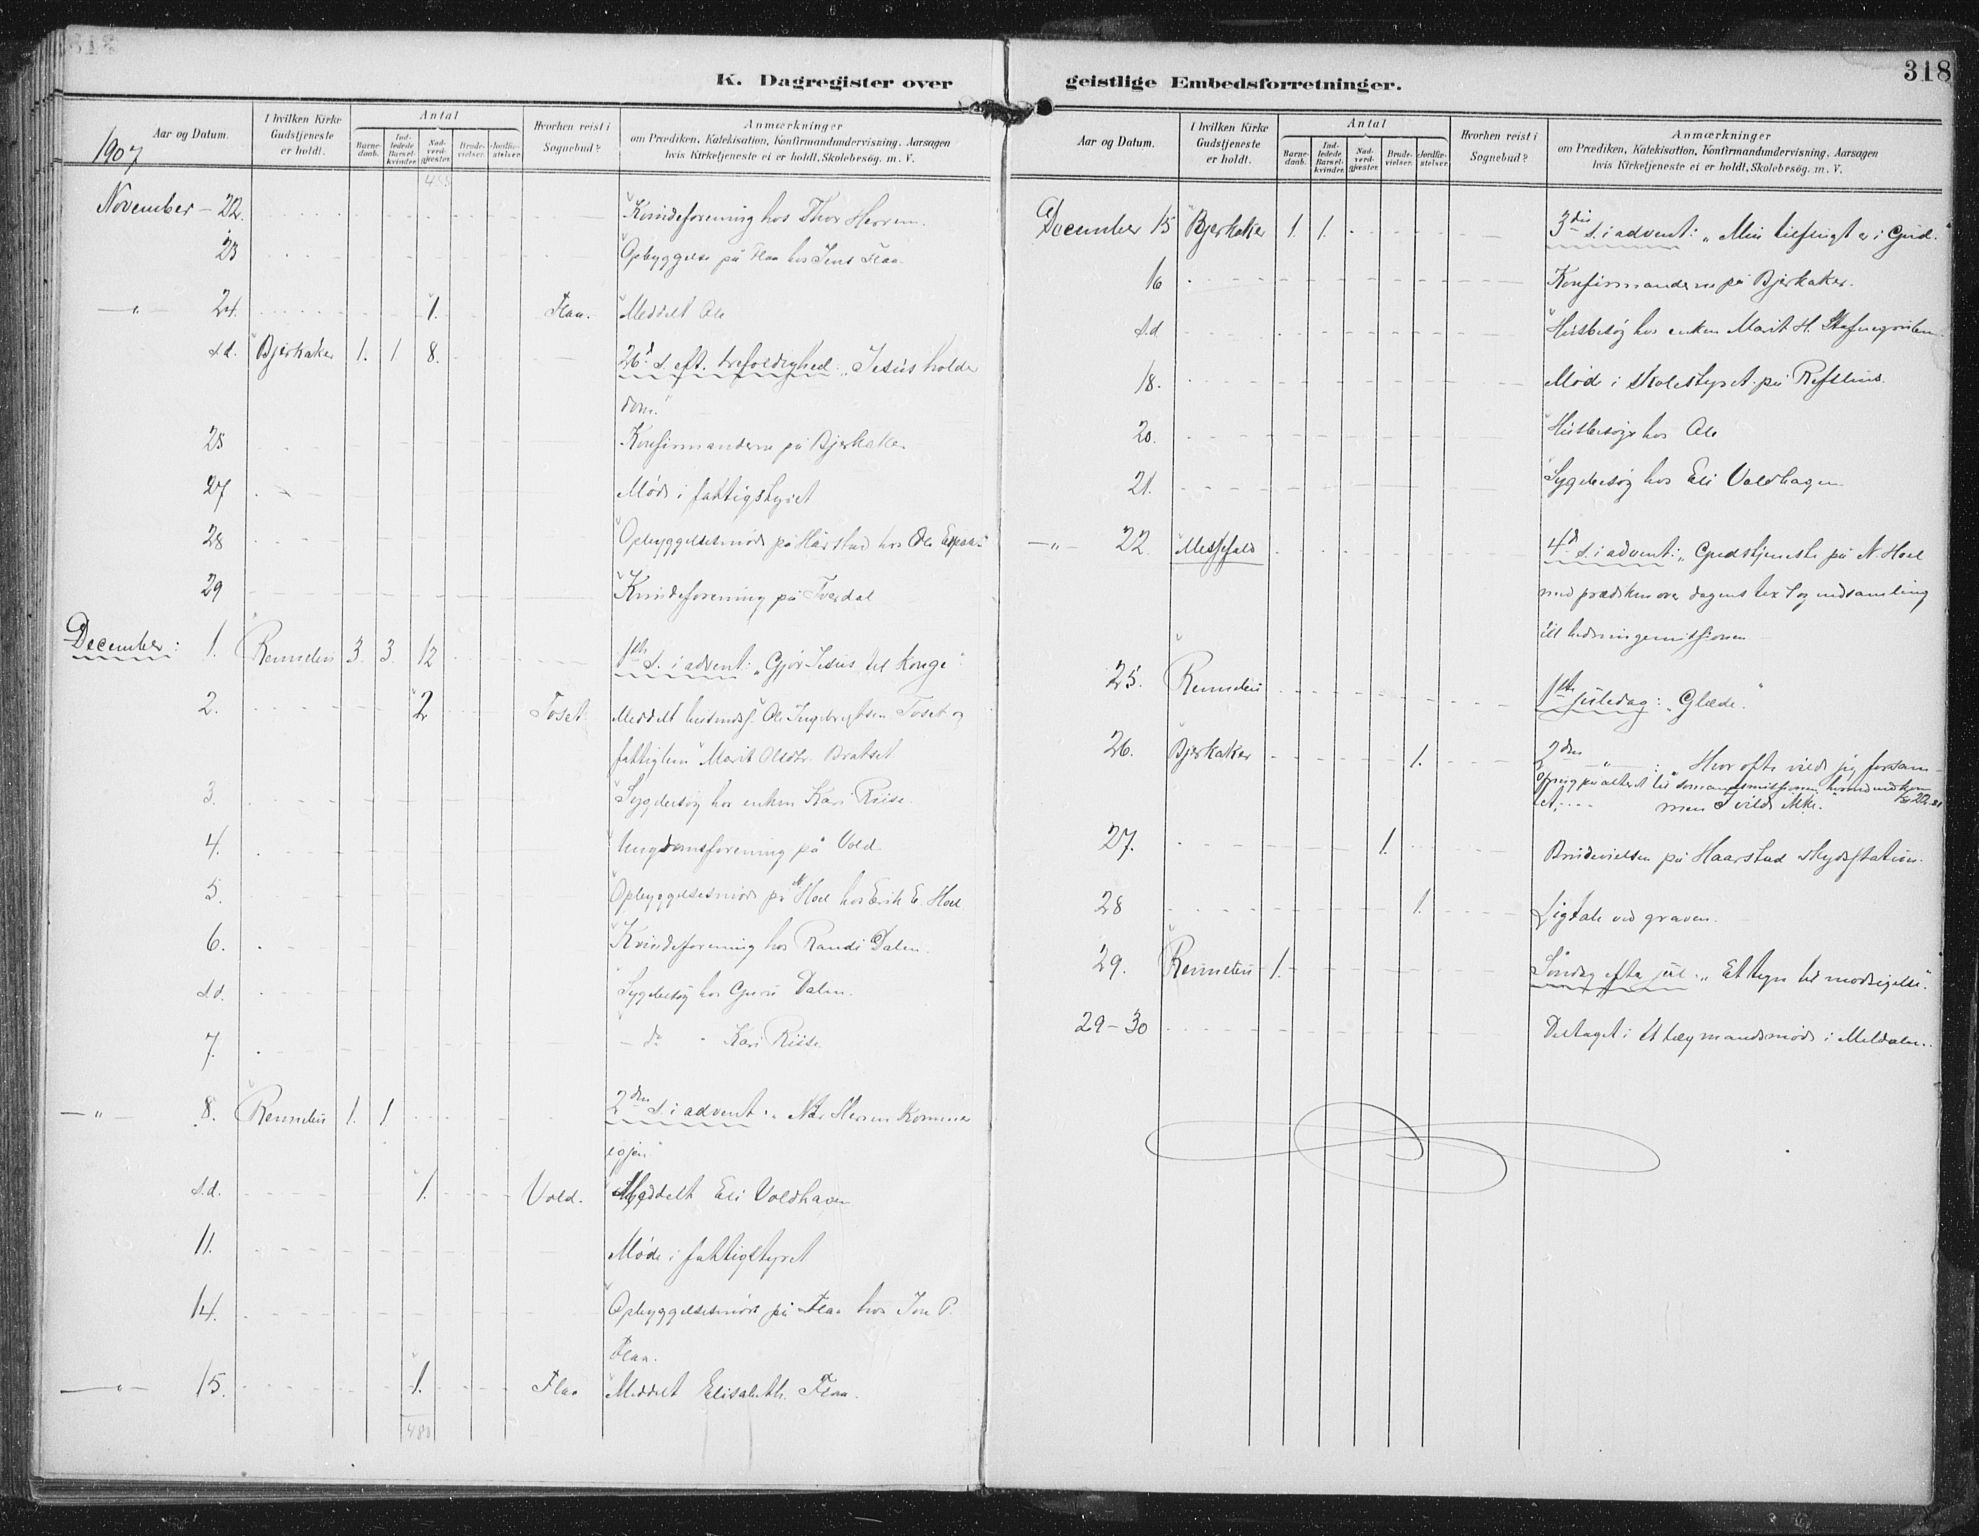 318
K. Dagregister over
geistlige Embedsforretninger.
Aar og Datum.
I hvilken Kirke Gudstjeneste er holdt.
Antal
Barnedaab.
Indledede Barselkvinder.
Nadverdgjester.
Brudevielser.
Jordfæstelser.
Hvorhen reist i Sognebud?
Anmærkninger
om Prædiken, Katekisation, Konfirmandundervisning, Aarsagen
hvis Kirketjeneste ei er holdt, Skolebesøg. m. V.
1907
November - 22. Kvindeforening hos Thor
23 Opbyggelse på Flaa hos Jens Flaa
-"- 24. 1. Flaa. Meddelt Ole
s.d. Bjerkaker 1. 1 8. 26d s. eft. trefoldighed: "Jesus holder
dom."
25 Konfirmanderne på Bjerkaker
27 Møde i fattigstyret
28 Opbyggelsesmøde på Harstad hos Ole
29 Kvindeforening på Tverdal
December: 1. Rennebu 3. 3. 12 1ste s. i advent: "Gjør Jesus til konge".
2. 2 Toset. Meddelt Ole Ingebrigtsen Toset og
fattiglem Marit Olsdtr. Bratset
3. Sygebesøg hos enken Kari Riise.
4. Ungdomsforening på Vold
5. Opbyggelsesmøde på N. Hoel hos Erik E. Hoel
6. Kvindeforening hos Randi Dalen.
s.d. Sygebesøg hos Guru Dalen.
7. - do " Kari Riise.
-"- 8. Rennebu 1. 1 2den s. i advent: "Når Herren kommer
igjen."
s.d. 1. Vold. Meddelt Eli Voldhaven
11. Møde i fattigstyret
14. Opbyggelsesmøde på Flaa hos Jon P.
Flaa.
-"- 15. 1. Flaa Meddelt Elisabeth Flaa.
480
Aar og Datum.
I hvilken Kirke Gudstjeneste er holdt.
Antal
Barnedaab.
Indledede Barselkvinder.
Nadverdgjester.
Brudevielser.
Jordfæstelser.
Hvorhen reist i Sognebud?
Anmærkninger
om Prædiken, Katekisation, Konfirmandundervisning, Aarsagen
hvis Kirketjeneste ei er holdt, Skolebesøg. m. V.
December 15 Bjerkaker 1. 1. 3die s. i advent: "Min tilflugt er i Gud."
16 Konfirmanderne på Bjerkaker.
s.d Husbesøg hos enken Marit H.
18. Møde i skolestyret på
20. Husbesøg hos Ole
21. Sygebesøg hos Eli Voldhagen
-"- 22. Messefald 4d s. i advent: "Gudstjeneste på N. Hoel
med prædiken over dagens text og indsamling
til hedningemissionen
25. Rennebu 1ste juledag: "Glæde."
26. Bjerkaker 1. 2den -"- : "Hvor ofte vilde jeg forsam-
Ofring på alteret til sømandsmissionen, hvorved indkom kr 22.21
let, ... men I vilde ikke."
27. 1. Brudevielsen på Haarstad skydsstation.
28 1. Ligtale ved graven.
29. Rennebu 1. Søndag efter jul: "Et tegn til modsigelse".
29-30 Deltaget i et lægmandsmøde i Meldalen.